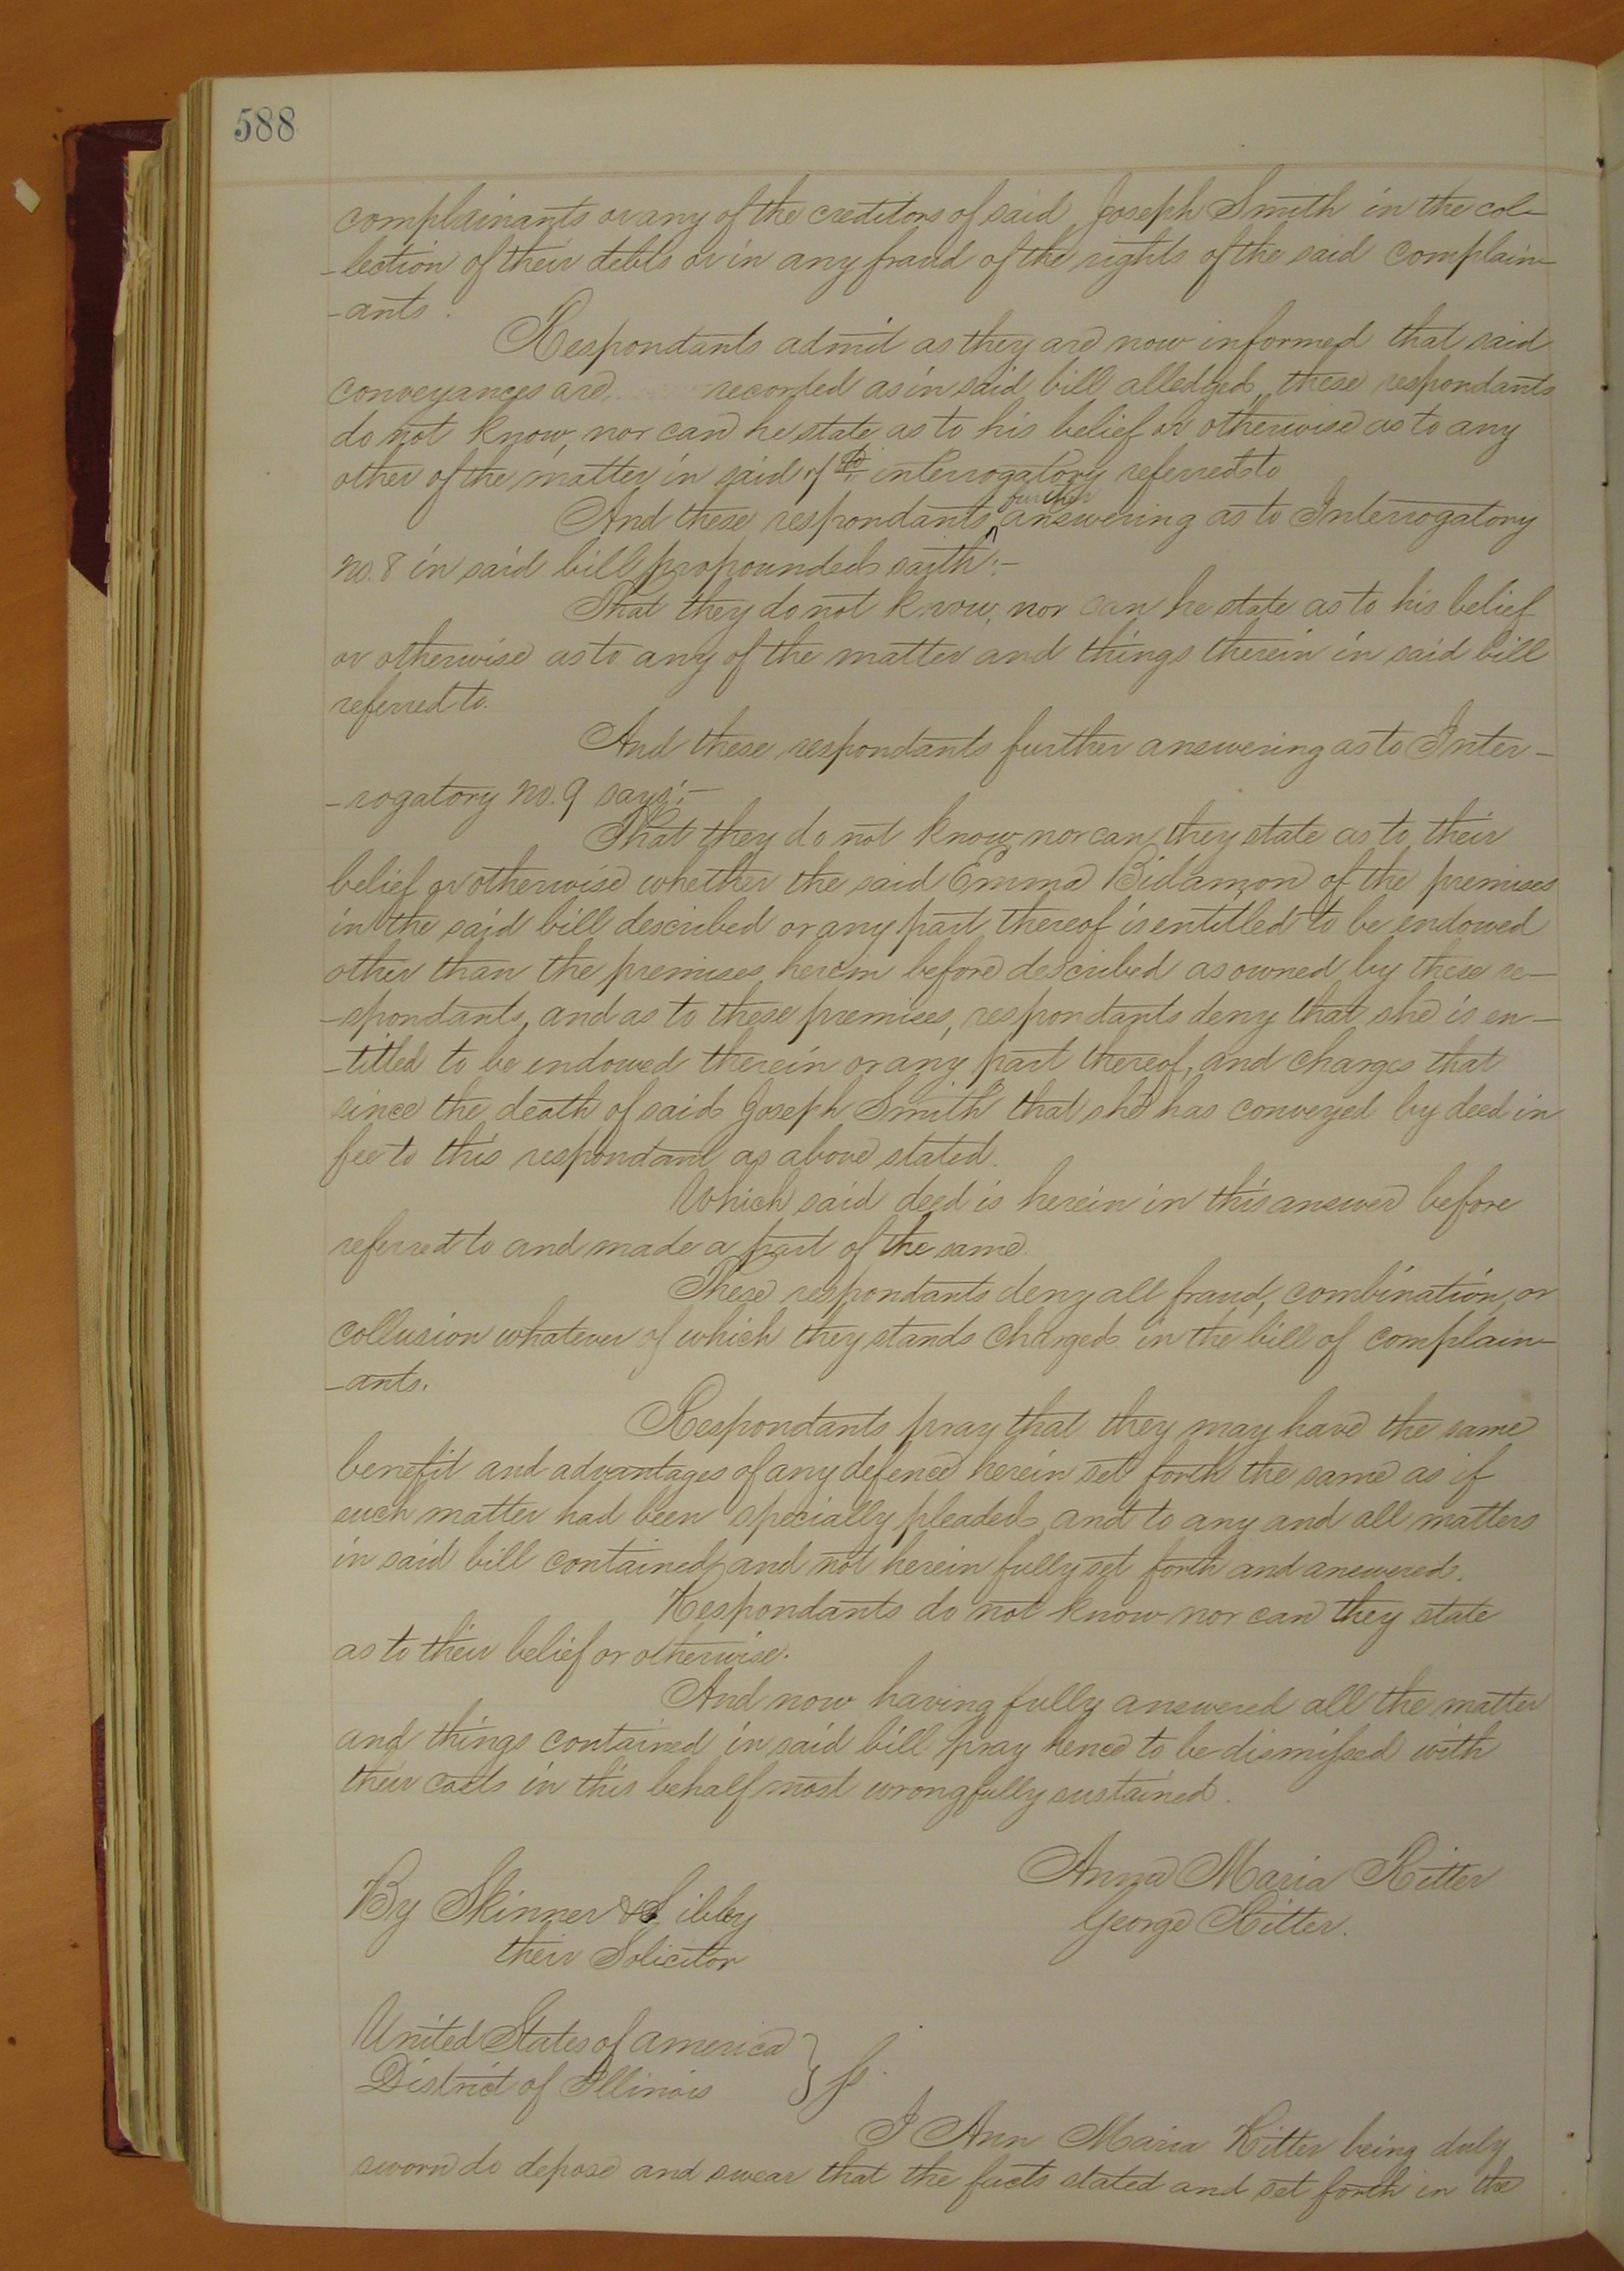 588
complainants or any of the creditors of said Joseph Smith in the col-
-lection of their debts or in any fraud of the rights of the said complain-
-ants.
Respondants admit as they are now informed that said
conveyances are recorded as in said bill alledged, these respondants
do not know, nor can he state as to his belief or otherwise as to any
other of the matter in said 7th interrogatory referred to
And these respondants further answering as to Interrogatory
no. 8 in said bill propounded saith:-
That they do not know, nor can he state as to his belief
or otherwise as to any of the matter and things therein in said bill
referred to.
And these respondants further answering as to Inter-
-rogatory no. 9 says:-
That they do not know nor can they state as to their
belief or otherwise whether the said Emma Bidamon of the premises
in the said bill described or any part thereof is entitled to be endowed
other than the premises herein before described as owned by these re-
-spondants, and as to these premises, respondants deny that she is en-
-titled to be endowed therein or any part thereof, and charges that
since the death of said Joseph Smith that she has conveyed by deed in
fee to this respondant as above stated.
Which said deed is herein in this answer before
referred to and made a part of the same.
These respondants deny all fraud, combination, or
collusion whatever of which they stands charged in the bill of complain-
-ants.
Respondants pray that they may have the same
benefit and advantages of any defence herein set forth the same as if
such matter had been specially pleaded and to any and all matters
in said bill contained and not herein fully set forth and answered.
Respondants do not know nor can they state
as to their belief or otherwise.
And now having fully answered all the matter
and things contained in said bill pray hence to be dismissed with
their costs in this behalf most wrongfully sustained.
Anna Maria Ritter
By Skinner & Sibley
George Ritter.
their Solicitor
United States of America
District of Illinois } ss.
I Ann Maria Ritter being duly
sworn do depose and swear that the facts stated and set forth in the